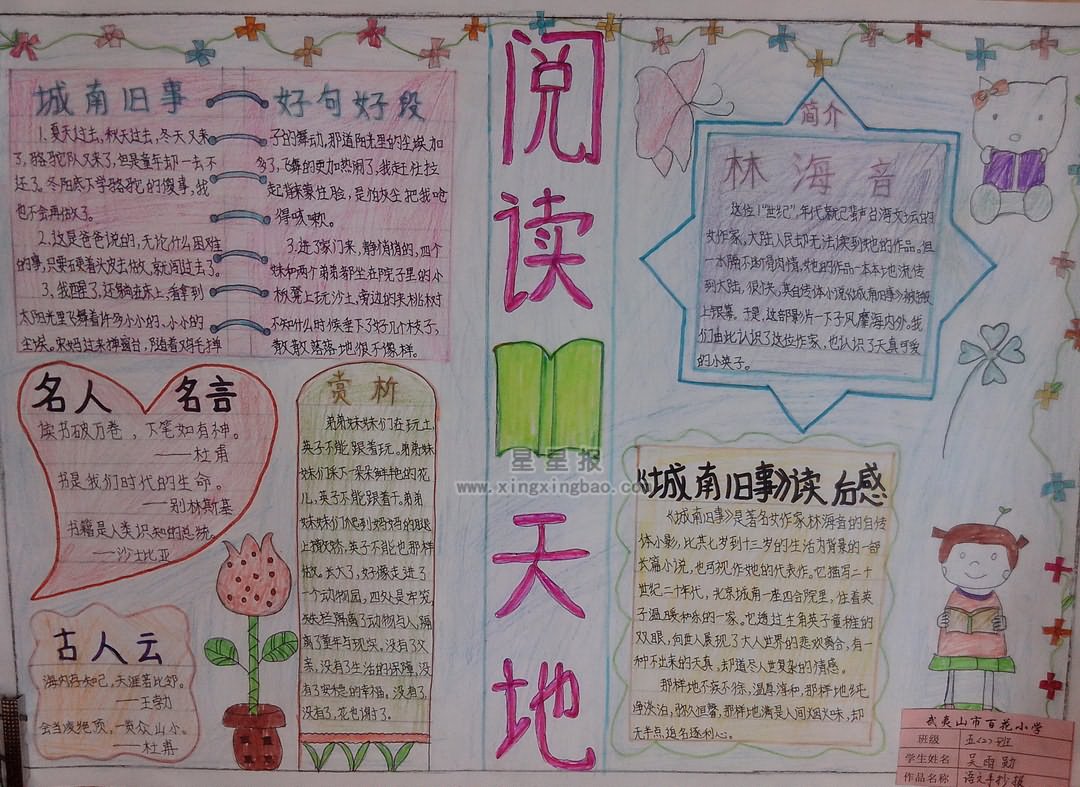 阅读天地
城南旧事
好句好段
1、夏天过去,秋天过去,冬天又来
了,骆驼队又来了,但是童年却一去不
还了。冬阳底下学骆驼的傻事,我
也不会再做了。
2、这是爸爸说的,无论什么困难
的事,只要硬着头皮去做,就闯过去了。
3、我醒了,还躺在床上,看到
太阳光里飞舞着许多小小的、小小的
尘埃。宋妈过来掸窗台,
子的舞动,那道阳光里的尘埃加
多了,飞舞的更加热闹了,我赶忙拉
起被来蒙住脸,是怕灰尘把我呛
得咳嗽。
3.进了家门来,静悄悄的,四个
妹和两个弟弟都坐在院子里的小
板凳上玩沙土,旁边的夹桃树
不知什么时候垂下了好几个枝子,
散散落落地很不像样。
简介
林海音
这位1"世纪"年代就已蜚声台湾文坛的
女作家,大陆人民却无法读到她的作品。但
一水隔不断骨肉情,她的作品一本本地流传
到大陆。很快,其自传体小说《城南旧事》被搬
上银幕。于是,这部影片一下子风靡海内外。我
们由此认识了这位作家,也认识了天真可爱
的小英子。
名人名言
读书破万卷,下笔如有神。
——杜甫
书是我们时代的生命。
——别林斯基
书籍是人类识知的总统。
——沙士比亚
赏析
弟弟妹妹们在玩土,
英子不能跟着玩。弟弟妹
妹们采下一朵朵鲜艳的花
儿,英子不能跟着干。弟弟
妹妹们爬到妈妈的腿
上撒娇,英子不能也那样
做。长大了,好像走进了
一个动物园,四处是牢笼,
铁栏隔离了动物与人,隔
离了童年与现实,没有了父
亲,没有了生活的保障,没
有了实稳的幸福,没有了,
没有了,花也谢了。
古人云
海内存知己,天涯若比邻。
——王勃
会当凌绝顶,一览众山小。
——杜甫
《城南旧事》读后感
《城南旧事》是著名女作家林海音的自传
体小影,比其七岁到十三岁的生活为背景的一部
长篇小说,也可视作她的代表作。它描写二十
世纪二十年代,北京城南一座四合院里,住着英
子温暖和乐的一家。它透过主角英子童稚的
双眼,向世人展现了大人世界的悲欢离合,有一
种不出来的天真,却道尽人世复杂的情感。
那样地不疾不徐,温厚淳和,那样地纯
净淡泊,弥久恒馨,那样地满是人间烟火味,却
无半点追名逐利心。
星星报
www.xingxingbao.com
武夷山市百花小学
班级 五(2)班
学生姓名 吴雨勋
作品名称 语文手抄报